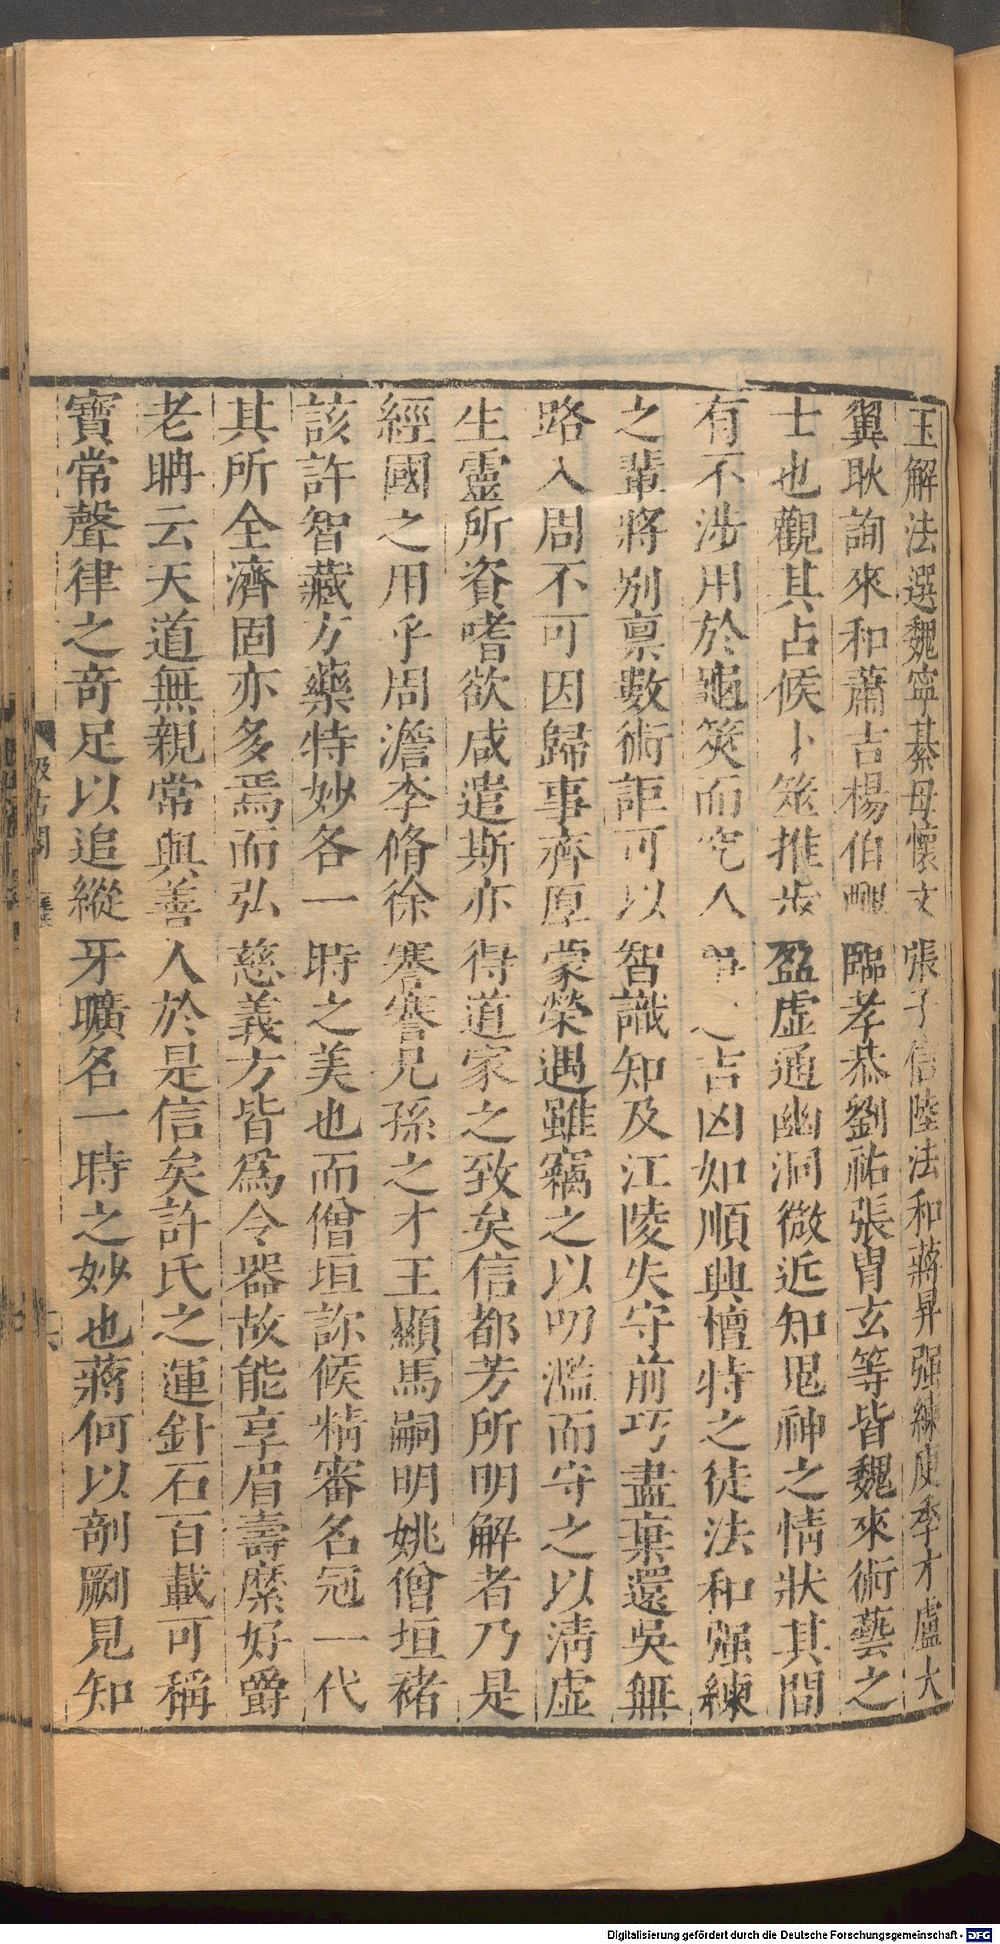 玉解法選魏寧綦母懷文張子信陸法和蔣昇强練庾季才盧大
翼耿詢來和蕭吉楊伯醜臨孝恭劉祐張冑玄等皆魏來術藝之
士也觀其占候卜筮推步盈虛通幽洞微近知鬼神之情狀其間
有不涉用於龜筴而究人事之吉凶如順興檀特之徒法和强練
之輩將别禀數術詎可以智識知及江陵失守前巧盡棄還吳無
路入周不可因歸事齊厚蒙榮遇雖竊之以叨濫而守之以淸虛
生靈所資嗜欲咸遣斯亦得道家之致矣信都芳所明解者乃是
經國之用乎周澹李脩徐謇謇兄孫之才王顯馬嗣明姚僧垣褚
該許智藏方藥特妙各一時之美也而僧垣診候精審名冠一代
其所全濟固亦多焉而弘慈義方皆爲令器故能享眉壽縻好爵
老聃云天道無親常與善人於是信矣許氏之運針石百載可稱
寶常聲律之奇足以追縱牙曠名一時之妙也蔣何以剞劂見知
汲古閣
Digitalisierung gefördert durch die Deutsche Forschungsgemeinschaft - DFG